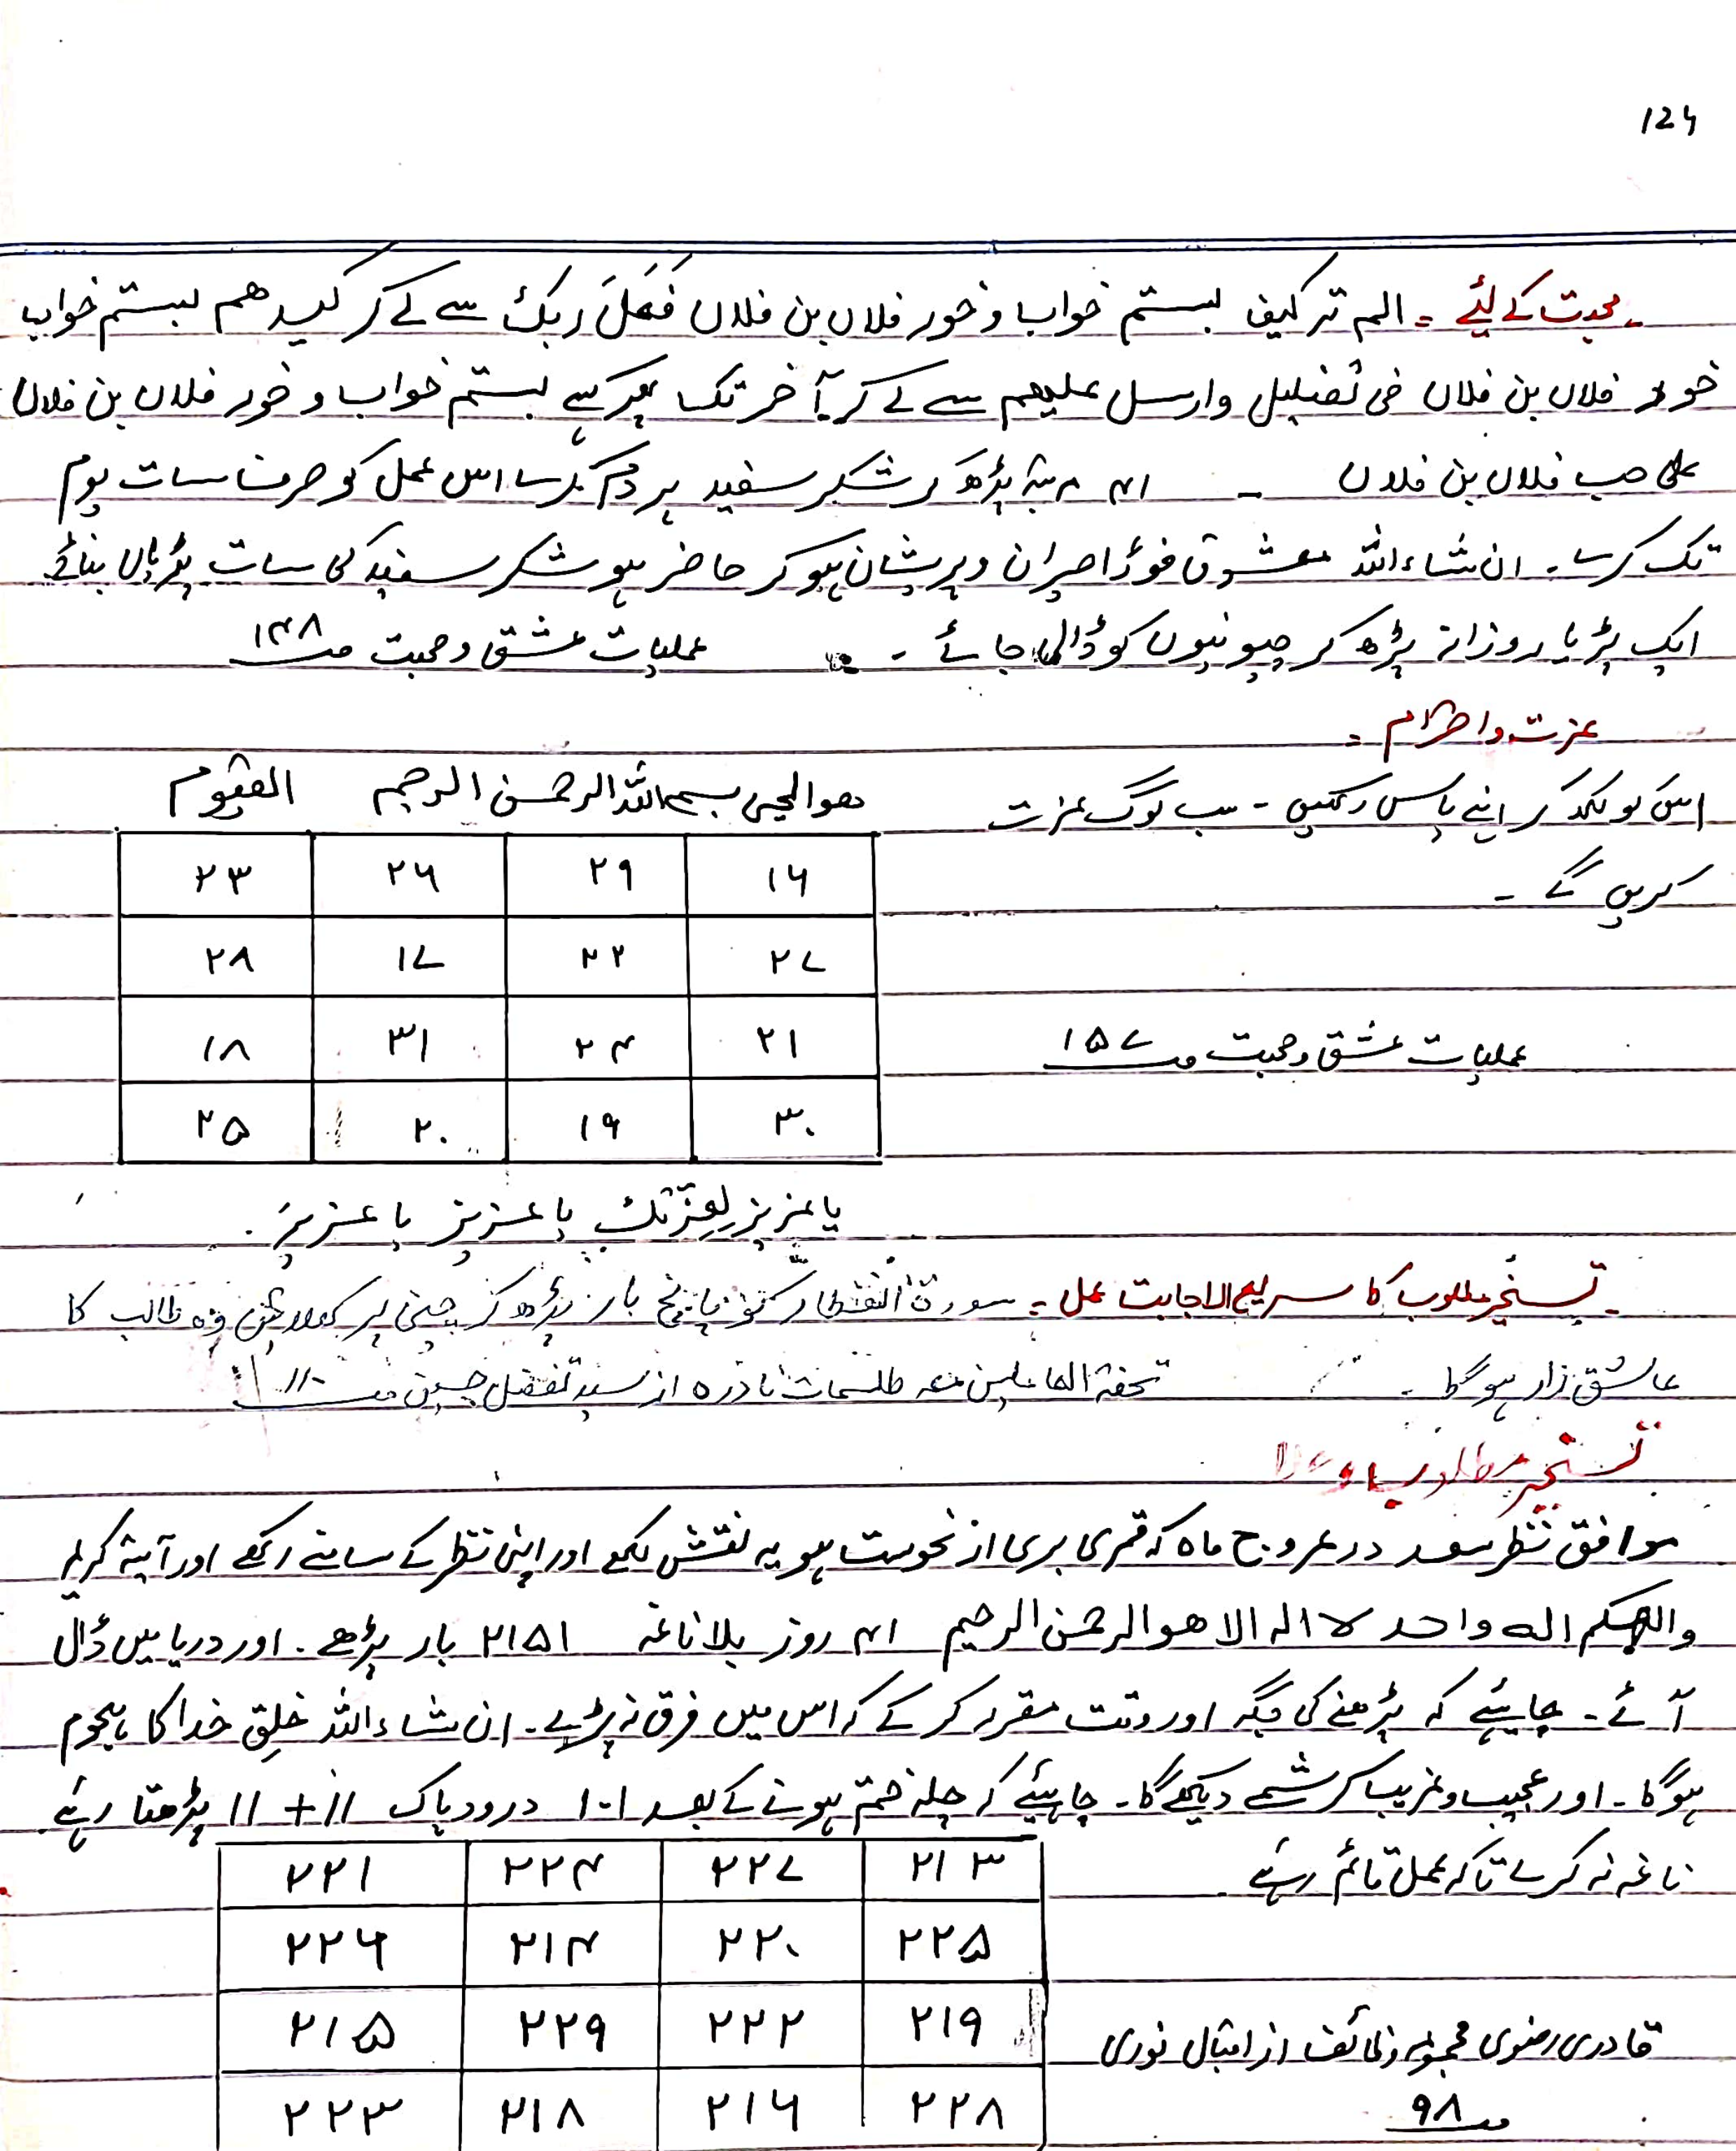 124
محبت کے لیئے = الم تر کیف بستم خواب و خور فلاں بن فلاں فَعَلَ ربک سے لے کر کیدھم بستم خواب
خور فلاں بن فلاں فی تضلیل وارسل علیھم سے لے کر آخر تک پھر کہے بستم خواب و خور فلاں بن فلاں
علی حب فلاں بن فلاں ۔ ۴۱ مرتبہ پڑھ کر شکر سفید پر دم کریں اس عمل کو صرف سات یوم
تک کریں ۔ ان شاءاللہ معشوق فوراً حیران و پریشان ہو کر حاضر ہو شکر سفید کی سات پڑیاں بنائے
ایک پڑیا روزانہ پڑھ کر چیونٹیوں کو ڈالی جائے ۔ عملیات عشق و محبت صـ ۱۴۸
عزت و احترام =
ھوالحی بسم اللہ الرحمن الرحیم القیوم
اس کو لکھ کر اپنے پاس رکھیں ۔ سب لوگ عزت
کریں گے ۔
۱۶ ۲۹ ۲۶ ۲۳
۲۷ ۲۲ ۱۷ ۲۸
۲۱ ۲۴ ۳۱ ۱۸
۳۰ ۱۹ ۲۰ ۲۵
عملیات عشق و محبت صـ ۱۵۷
یا عزیز بعزتک یا عزیز یا عزیز ۔
تسخیر مطلوب کا سریع الاجابت عمل = سورۃ انفطار کو پانچ بار پڑھ کر چینی پر کھلائیں وہ طالب کا
عاشق زار ہو گا ۔ تحفۃ العاملین معہ طلسمات نادرہ از سید تفضل حسین صـ ۱۱۰
تسخیر مطلوب
موافق نظر سعد در عروج ماہ کہ قمری بری از نحوست ہو یہ نقش لکھے اور اپنی نظر کے سامنے رکھے اور آیۃ کریمہ
والھکم الہ واحد لا الہ الا ھو الرحمن الرحیم ۴۱ روز بلا ناغہ ۲۱۵۱ بار پڑھے ۔ اور دریا میں ڈال
آئے ۔ چاہیئے کہ پڑھنے کی جگہ اور وقت مقرر کر کے کہ اس میں فرق نہ پڑے ۔ ان شاءاللہ خلقِ خدا کا ہجوم
ہو گا ۔ اور عجیب و غریب کرشمے دیکھے گا ۔ چاہیئے کہ چلہ ختم ہونے کے بعد ۱۰۱ درود پاک ۱۱ + ۱۱ پڑھتا رہے
ناغہ نہ کرے تاکہ عمل قائم رہے
۲۱۳ ۲۲۷ ۲۲۴ ۲۲۱
۲۲۵ ۲۲۰ ۲۱۴ ۲۲۶
۲۱۹ ۲۲۲ ۲۲۹ ۲۱۵
۲۲۸ ۲۱۶ ۲۱۸ ۲۲۳
قادری رضوی مجموعہ وظائف از اقبال نوری
صـ ۹۸